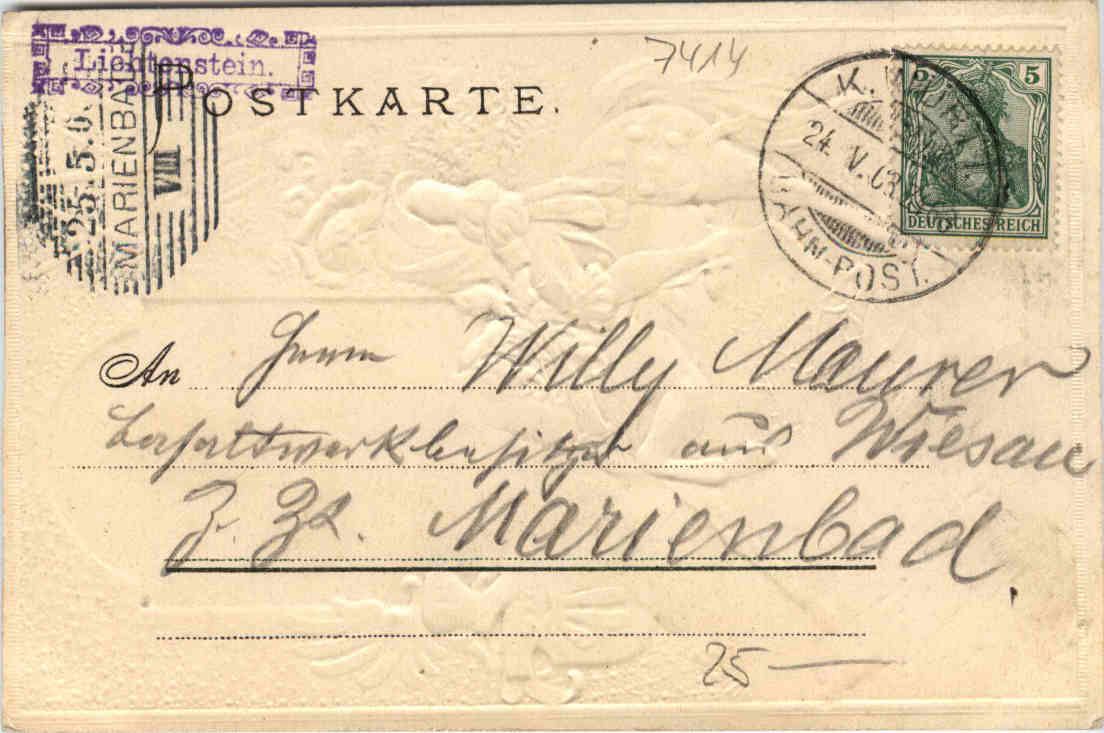 Lichtenstein.
POSTKARTE.
7414
25.5.0
MARIENBAD
VIII
K. WÜRTT.
24. V. 03
BAHN-POST.
5 5
DEUTSCHES REICH
An Herrn Willy Maurer
Basaltwerkbesitzer aus Wiesau
z. Zt. Marienbad.
25